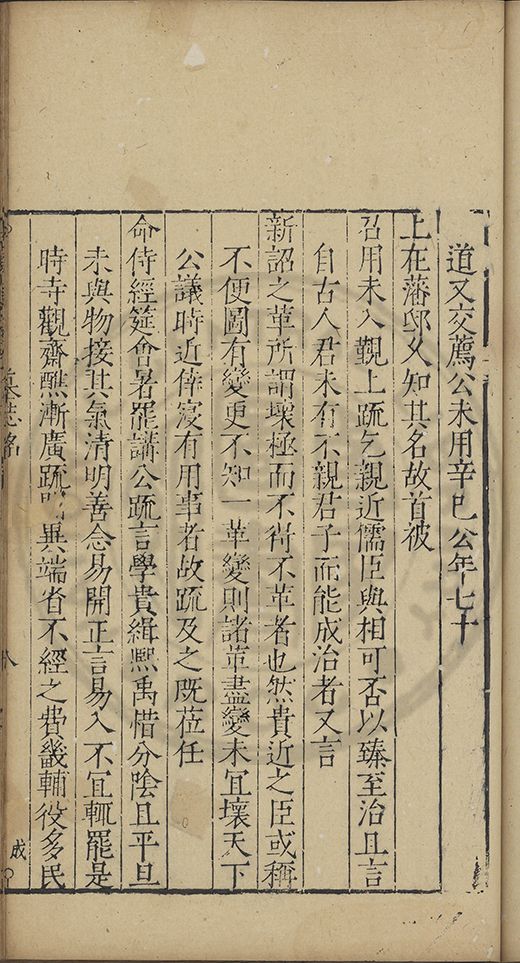 道又交薦公未用辛巳公年七十
上在藩邸久知其名故首被
召用未入覲上疏乞親近儒臣與相可否以臻至治且言
自古人君未有不親君子而能成治者又言
新詔之革所謂壞極而不得不革者也然貴近之臣或稱
不便圖有變更不知一革變則諸革盡變未宜壞天下
公議時近倖寖有用事者故疏及之既莅任
命侍經筵會暑罷講公疏言學貴緝熙禹惜分陰且平旦
未與物接其氣清明善念易開正言易入不宜輒罷是
時寺觀齋醮漸廣疏異端省不經之費畿輔役多民
墓誌銘
八
成